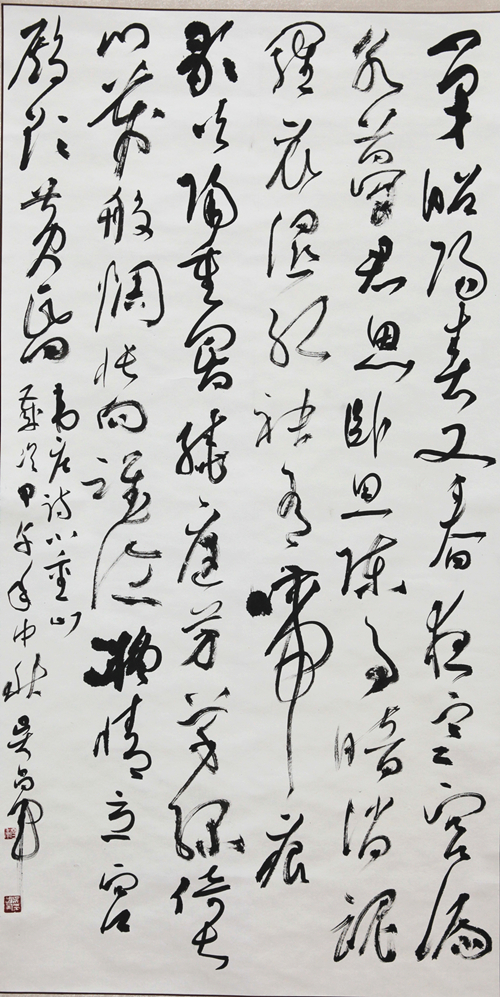 一閉昭陽春又春夜寒宮漏
永夢君恩臥思陳事暗消魂
羅衣濕紅袂有啼痕
歌吹隔重閽繞庭芳草綠倚長
門萬般惆悵向誰論凝情立宮
殿欲黃昏
韋莊詩小重山
歲次甲午年中秋